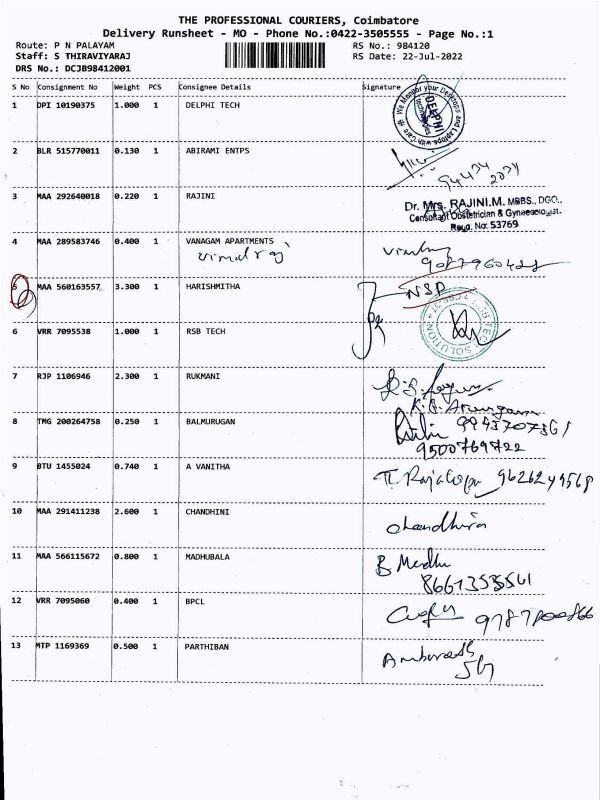 THE PROFESSIONAL COURIERS, Coimbatore
Delivery Runsheet - MO - Phone No.:0422-3505555 - Page No.:1
Route: P N PALAYAM RS No.: 984120
Staff: S THIRAVIYARAJ RS Date: 22-Jul-2022
DRS No.: DCJB98412001
S No Consignment No Weight PCS Consignee Details Signature
1 DPI 10190375 1.000 1 DELPHI TECH
We Manage your Desktops and Laptops with Care
DELPHI
2 BLR 515770011 0.130 1 ABIRAMI ENTPS
94434
2034
3 MAA 292640018 0.220 1 RAJINI
Dr. Mrs. RAJINI.M. MBBS., DGO.,
Consultant Obstetrician & Gynaecologist.
Regd. No: 53769
4 MAA 289583746 0.400 1 VANAGAM APARTMENTS
vimal raj
9087960422
5 MAA 560163557 3.300 1 HARISHMITHA
NSP
6 VRR 7095538 1.000 1 RSB TECH
7 RJP 1106946 2.300 1 RUKMANI
8 TMG 200264758 0.250 1 BALMURUGAN
9500769722
9 BTU 1455024 0.740 1 A VANITHA
10 MAA 291411238 2.600 1 CHANDHINI
11 MAA 566115672 0.800 1 MADHUBALA
B Madhu
12 VRR 7095060 0.400 1 BPCL
13 MTP 1169369 0.500 1 PARTHIBAN